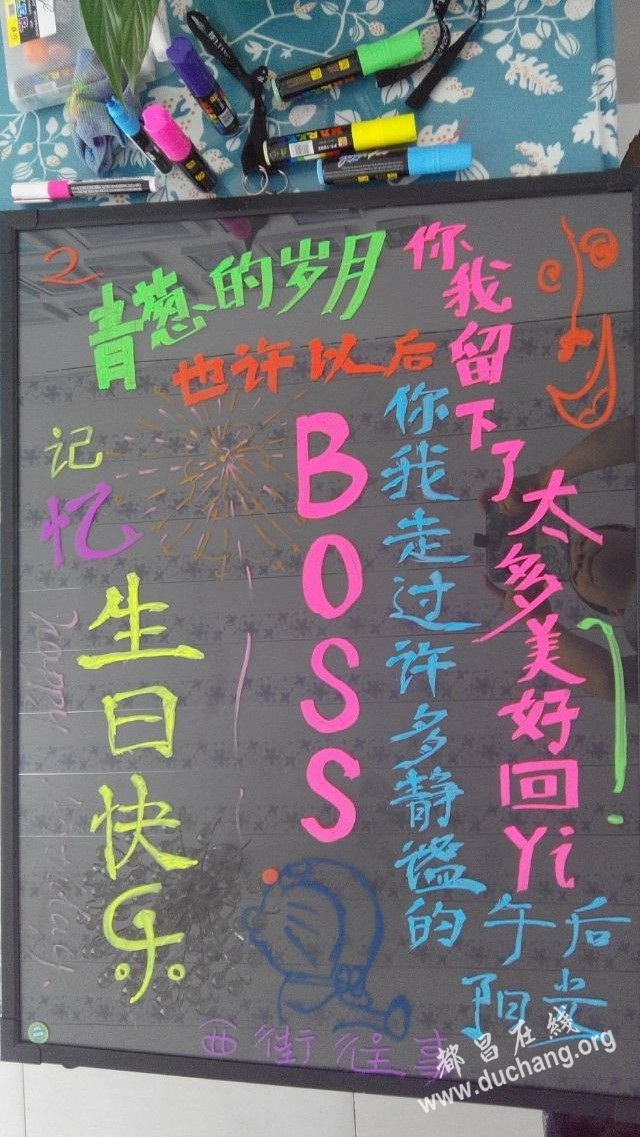 2
青葱的岁月
也许以后
你我留下了太多美好回Yi
你我走过许多静谧的
午后
阳光
BOSS
记忆
生日快乐
happy
西街往事
都昌在线
www.duchang.org